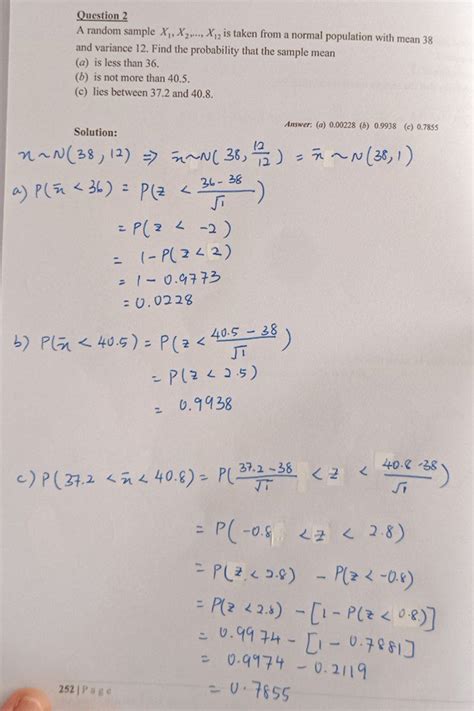 Question 2
A random sample X₁, X₂,..., X₁₂ is taken from a normal population with mean 38
and variance 12. Find the probability that the sample mean
(a) is less than 36.
(b) is not more than 40.5.
(c) lies between 37.2 and 40.8.
Answer: (a) 0.00228 (b) 0.9938 (c) 0.7855
Solution:
x ~ N(38, 12) ⇒ x̄ ~ N(38, 12/12) = x̄ ~ N(38, 1)
a) P(x̄ < 36) = P(z < (36 - 38)/√1)
= P(z < -2)
= 1 - P(z < 2)
= 1 - 0.9773
= 0.0228
b) P(x̄ < 40.5) = P(z < (40.5 - 38)/√1)
= P(z < 2.5)
= 0.9938
c) P(37.2 < x̄ < 40.8) = P((37.2 - 38)/√1 < z < (40.8 - 38)/√1)
= P(-0.8 < z < 2.8)
= P(z < 2.8) - P(z < -0.8)
= P(z < 2.8) - [1 - P(z < 0.8)]
= 0.9974 - [1 - 0.7881]
= 0.9974 - 0.2119
= 0.7855
252 | Page